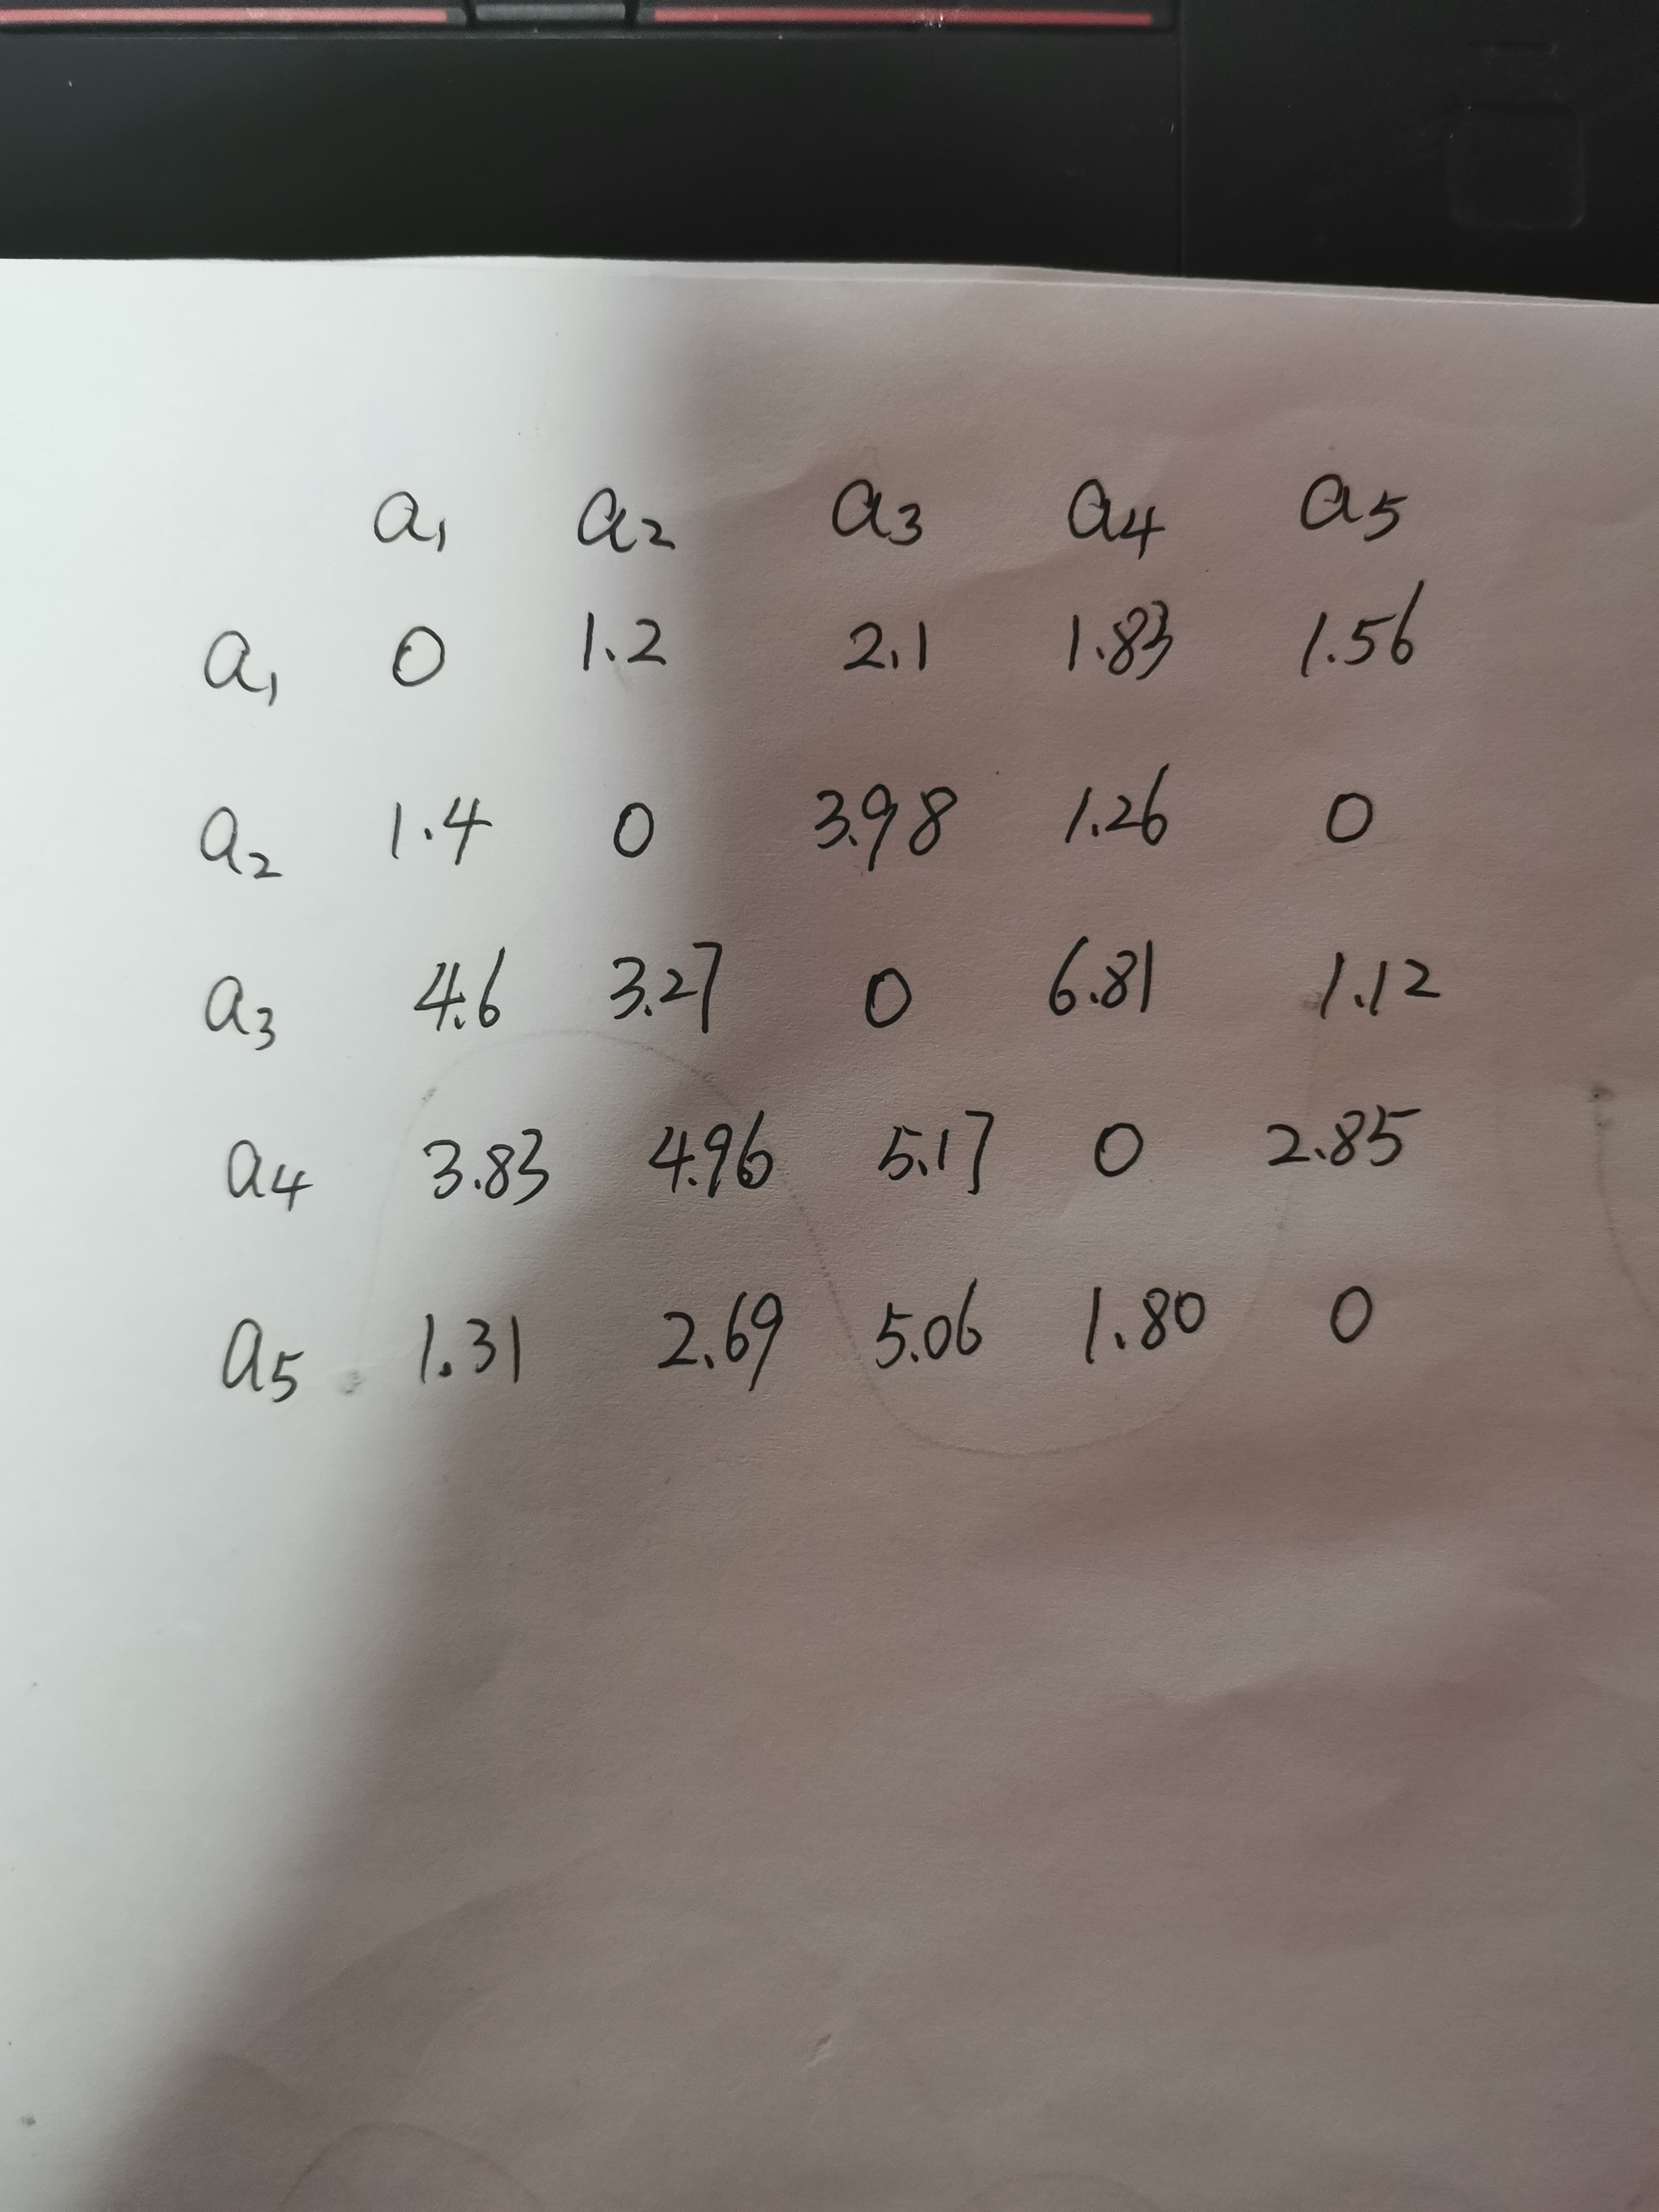 a₁ a₂ a₃ a₄ a₅
a₁ 0 1.2 2.1 1.83 1.56
a₂ 1.4 0 3.98 1.26 0
a₃ 4.6 3.27 0 6.81 1.12
a₄ 3.83 4.96 5.17 0 2.85
a₅ 1.31 2.69 5.06 1.80 0